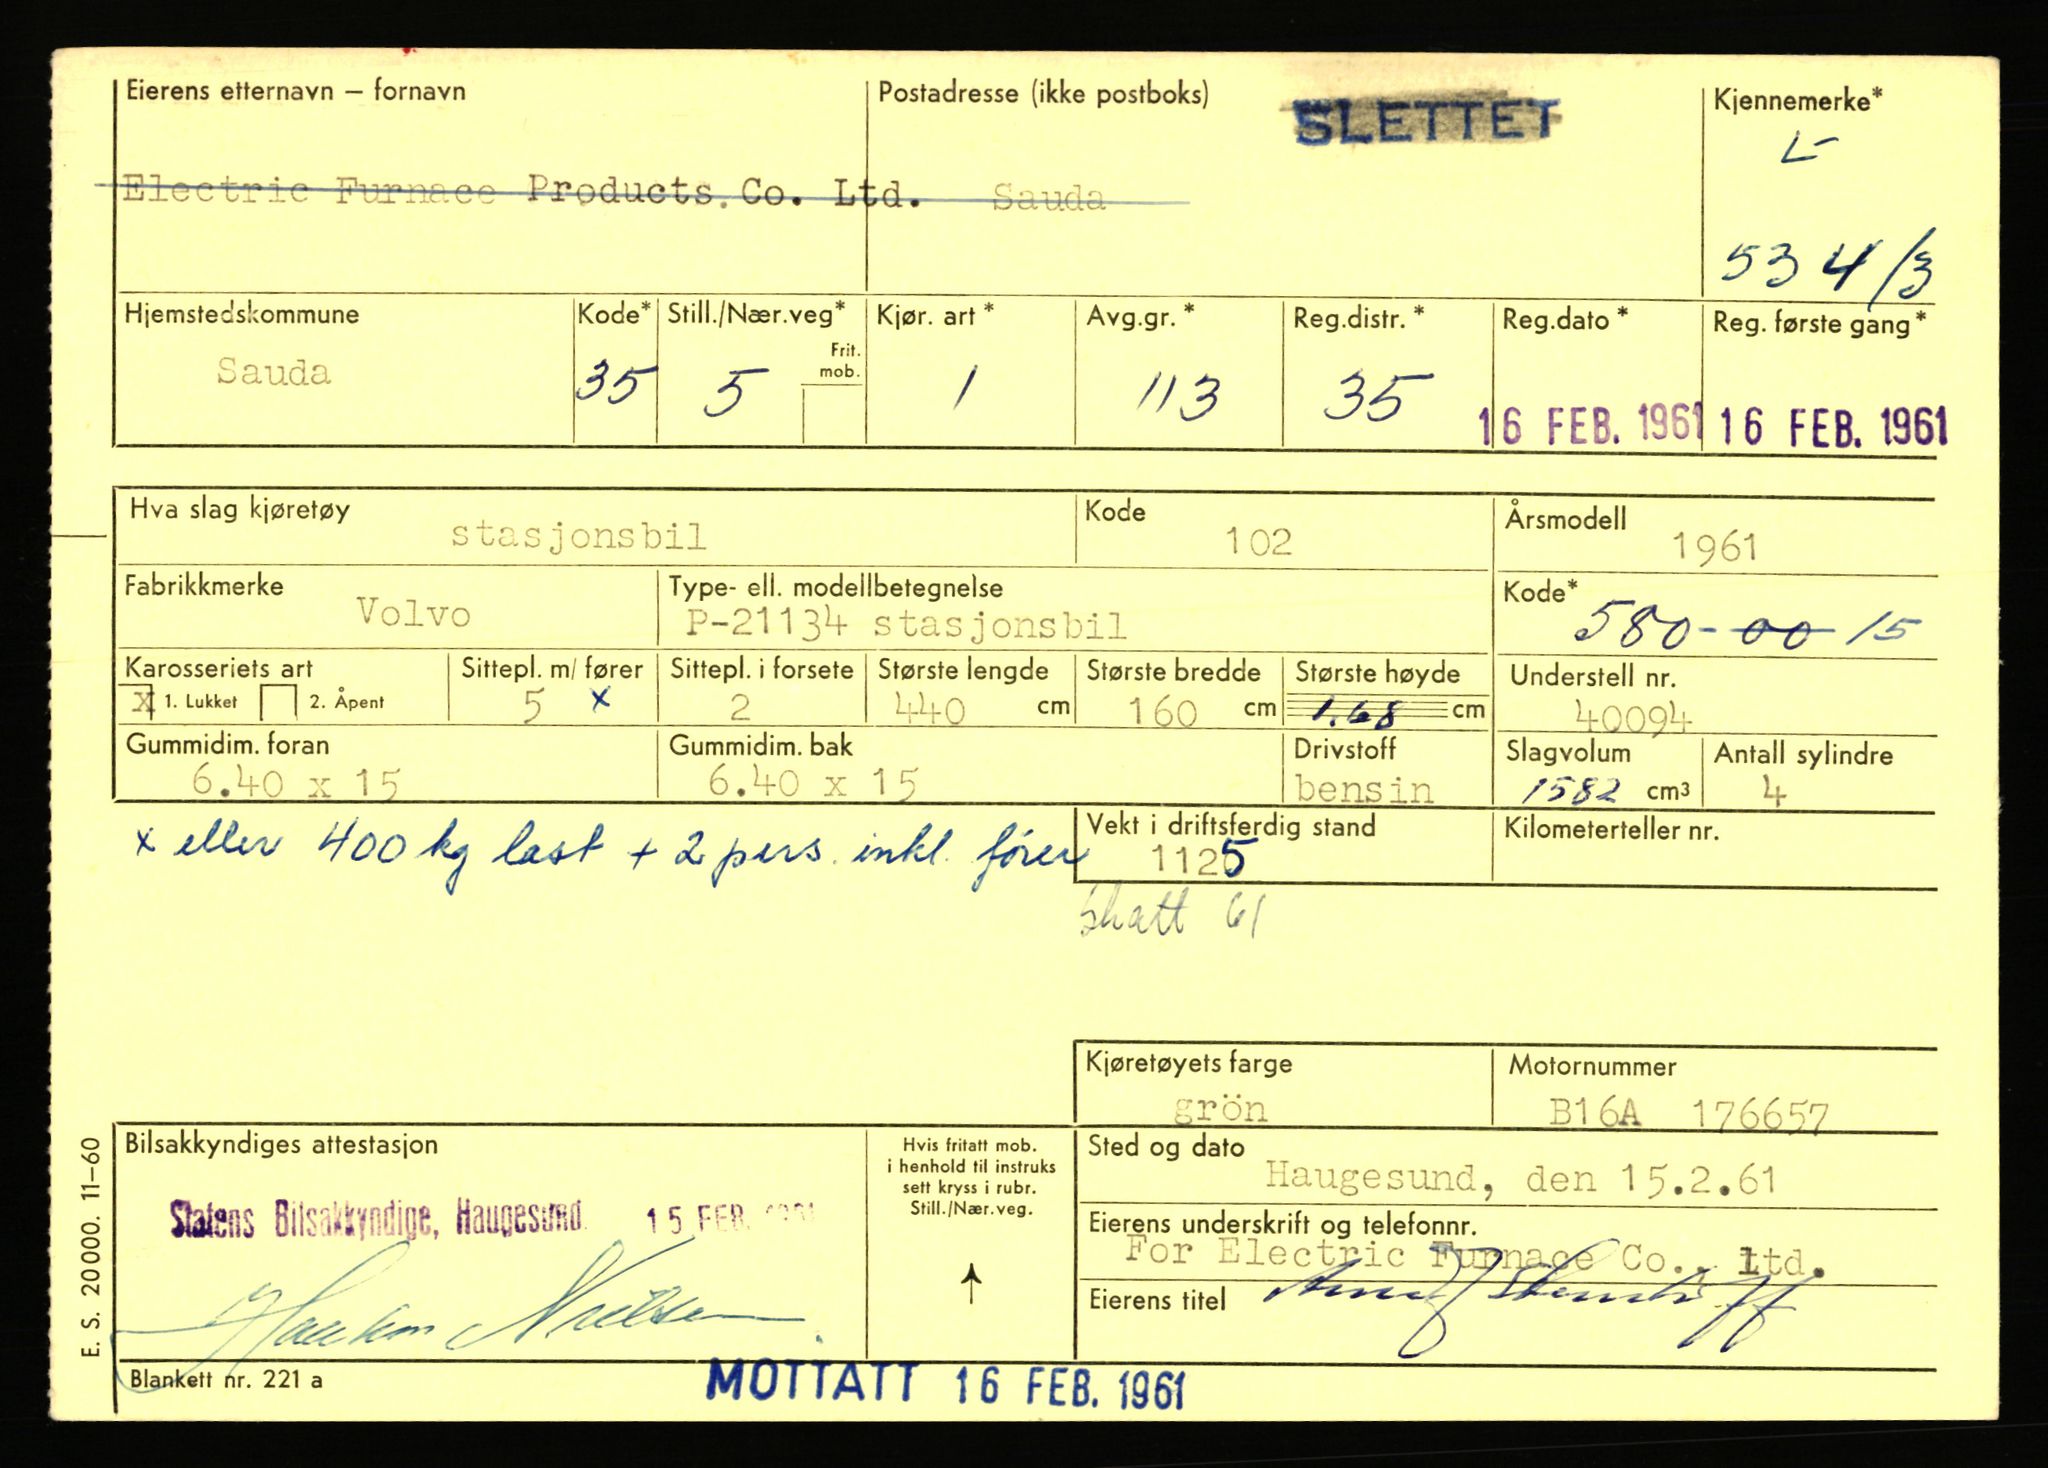 Eierens etternavn – fornavn
Postadresse (ikke postboks)
SLETTET
Kjennemerke*
L-
Electric Furnace Products Co. Ltd. Sauda
534/3
Hjemstedskommune
Kode*
Still./Nær.veg*
Kjør. art *
Avg.gr. *
Reg.distr. *
Reg.dato *
Reg. første gang*
Frit. mob.
Sauda
35
5
1
113
35
16 FEB. 1961
16 FEB. 1961
Hva slag kjøretøy
stasjonsbil
Kode
102
Årsmodell
1961
Fabrikkmerke
Volvo
Type- ell. modellbetegnelse
P-21134 stasjonsbil
Kode*
580-00 15
Karosseriets art
X 1. Lukket
2. Åpent
Sittepl. m/ fører
5 x
Sittepl. i forsete
2
Største lengde
440 cm
Største bredde
160 cm
Største høyde
1.68 cm
Understell nr.
40094
Gummidim. foran
6.40 x 15
Gummidim. bak
6.40 x 15
Drivstoff
bensin
Slagvolum
1582 cm³
Antall sylindre
4
x eller 400 kg last + 2 pers. inkl. fører
Vekt i driftsferdig stand
1125
Kilometerteller nr.
skatt 61
Kjøretøyets farge
grön
Motornummer
B16A 176657
Bilsakkyndiges attestasjon
Statens Bilsakkyndige, Haugesund.
15 FEB. 1961
Hvis fritatt mob.
i henhold til instruks
sett kryss i rubr.
Still./Nær.veg.
↑
Sted og dato
Haugesund, den 15.2.61
Eierens underskrift og telefonnr.
For Electric Furnace Co.. Ltd.
Eierens titel
Blankett nr. 221 a
MOTTATT 16 FEB. 1961
E. S. 20000. 11–60